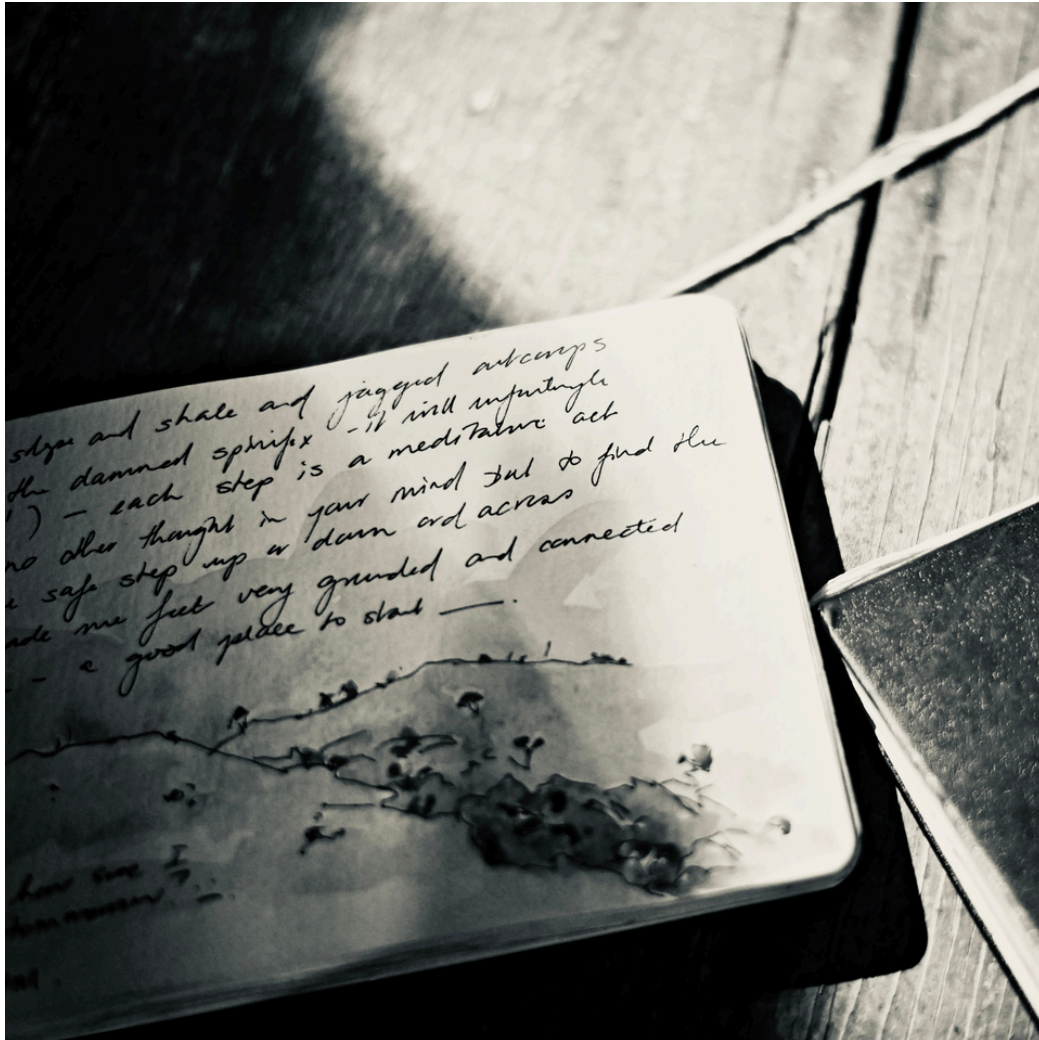 and shale and jagged outcrops
the damned spinifex - it will
) — each step is a meditative act
no other thought in your mind but to find the
safe step up or down and across
me feel very grounded and connected
- a good place to start —.